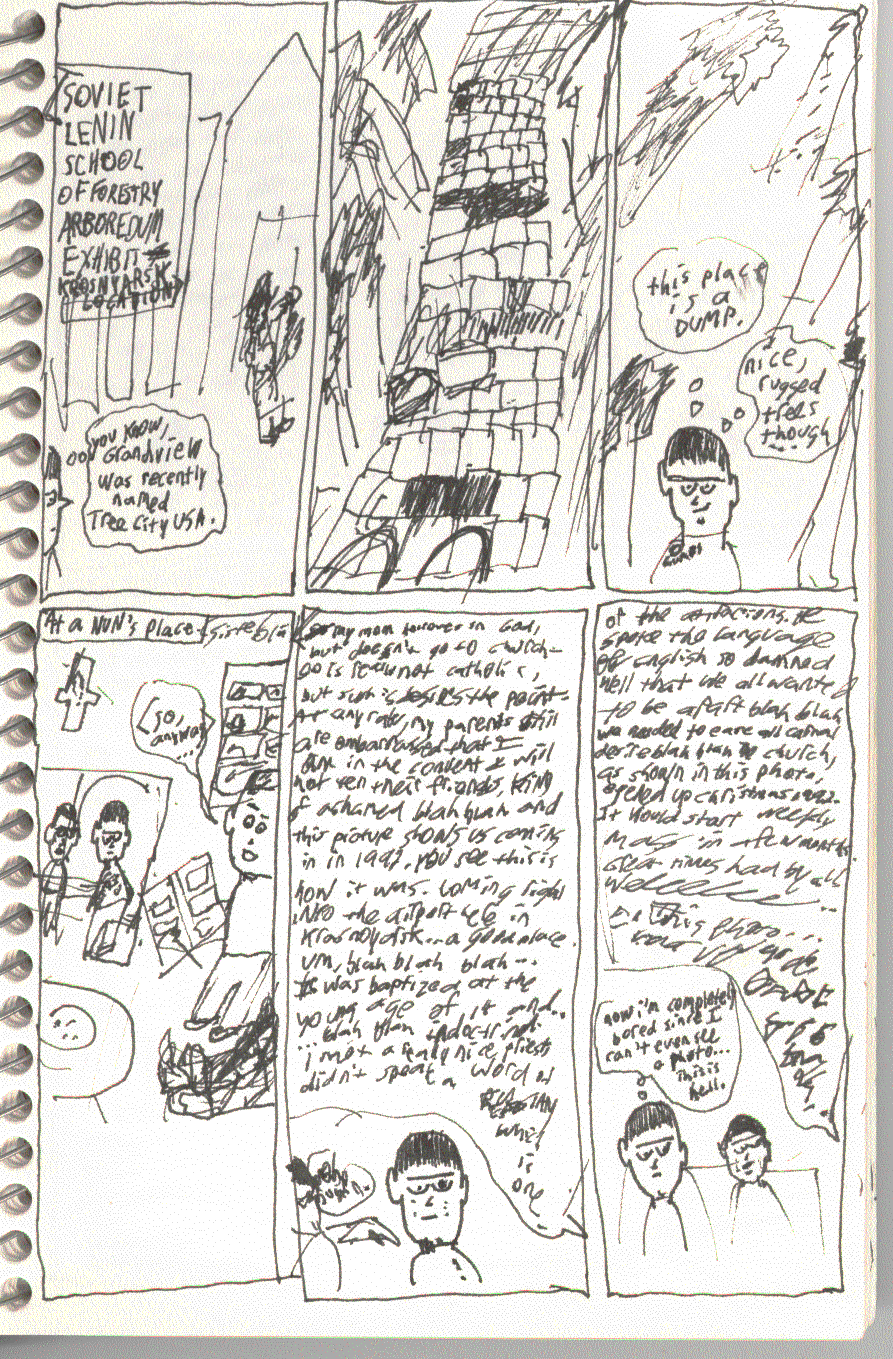 SOVIET
LENIN
SCHOOL
OF FORESTRY
ARBOREDUM
EXHIBIT
KROSNYARSK
LOCATION
you know,
Grandview
was recently
named
Tree City USA.
this place
is a
DUMP.
nice,
rugged
trees
though
At a NUN'S place
so,
anyway
...
my mom in God,
but doesn't go to church
is not catholic,
but the point
At any rate, my parents still
are embarrassed that I
am in the convent & will
not their friends, kind
of ashamed blah blah and
this picture shows us coming
in in 1992. you see this is
how it was. coming right
into the airport in
Krasnoyarsk... a good place.
UM, blah blah blah...
was baptized at the
young age of and..
... blah blah
a really nice priest
didn't speak a word of
which
is
one
of the attractions. He
spoke the language
of english so damned
well that we all wanted
to be apart blah blah
we needed to all carnal
desire blah blah church,
as shown in this photo,
opened up christmas
It would start weekly
mass in a few months.
Great times had by all
This photo...
now i'm completely
bored since I
can't even see
a photo...
this is
hell.